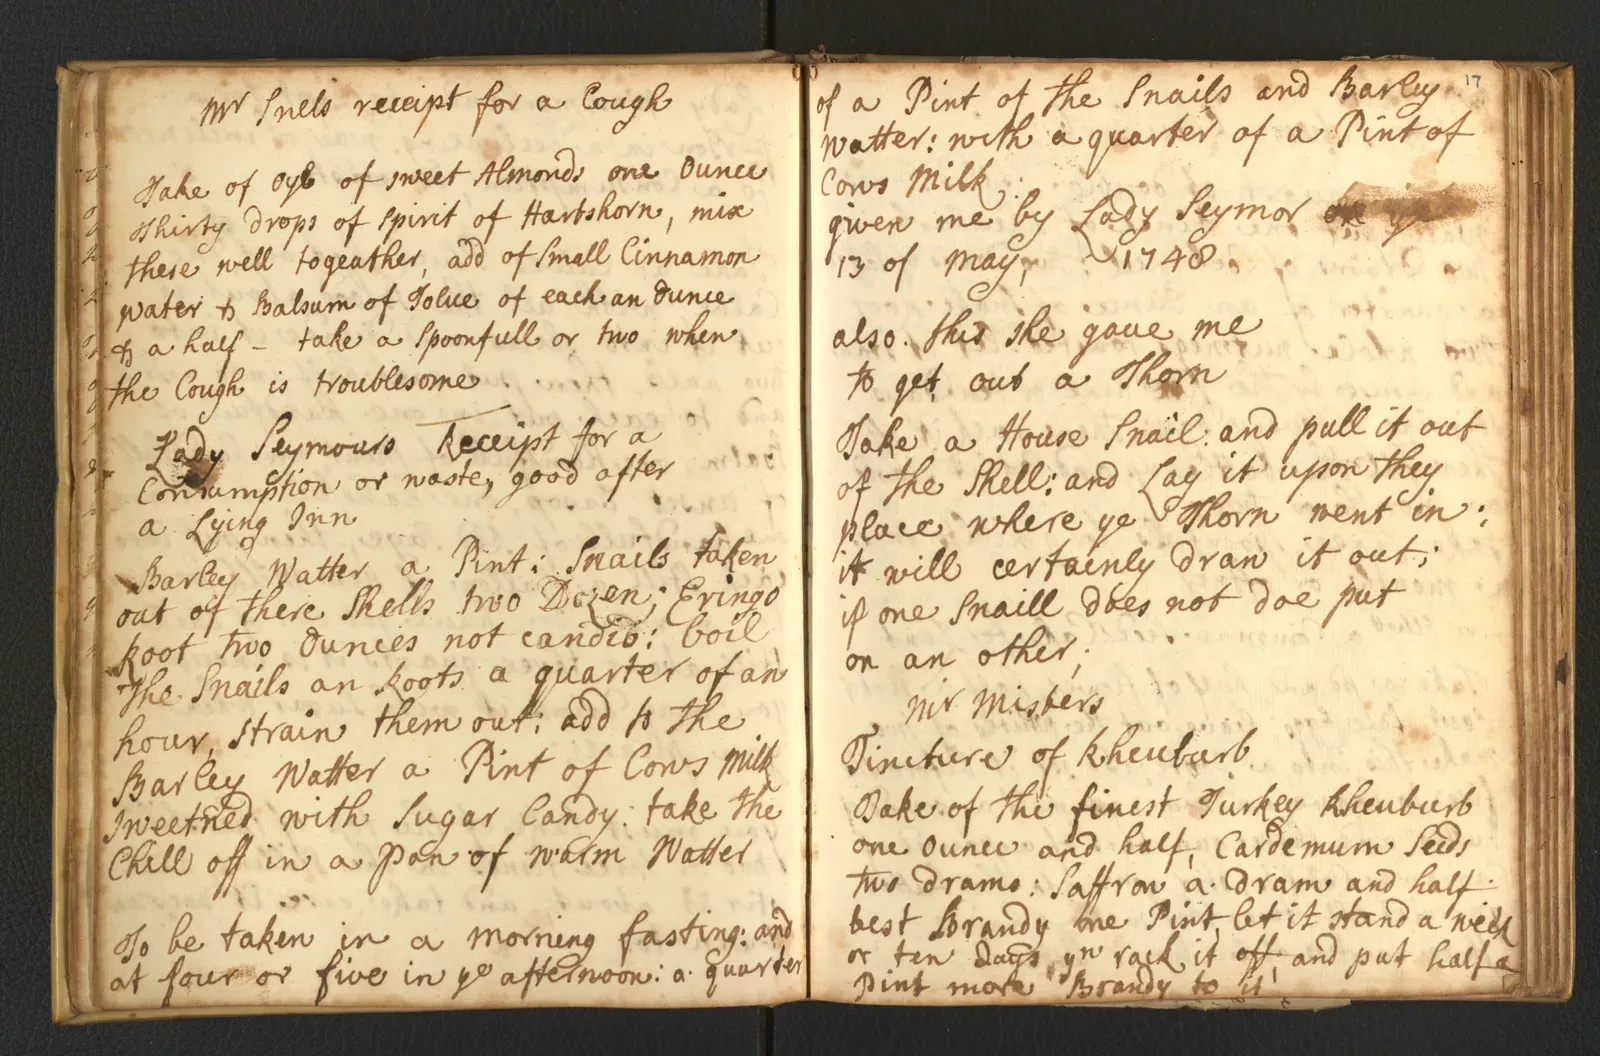 Mr Snels receipt for a Cough
Take of Oyl of sweet Almonds one Ounce
Thirty drops of Spirit of Hartshorn, mix
these well togeather, add of Small Cinnamon
water & Balsum of Tolue of each an Ounce
& a half - take a Spoonfull or two when
the Cough is troublesome
Lady Seymours Receipt for a
Consumption or waste, good after
a Lying Inn
Barley Watter a Pint: Snails taken
out of there Shells two Dozen; Eringo
Root two Ounces not candid: boil
The Snails an Roots a quarter of an
hour, strain them out: add to the
Barley Watter a Pint of Cows Milk
Sweetned with Sugar Candy: take the
Chill off in a pan of warm Watter
To be taken in a morning fasting: and
at four or five in ye afternoon: a quarter
17
of a Pint of the Snails and Barley
Watter: with a quarter of a Pint of
Cows Milk
given me by Lady Seymor on ye
13 of May, 1748
also. this she gave me
to get out a Thorn
Take a House Snail: and pull it out
of the Shell: and Lay it upon they
place where ye Thorn went in:
it will certainly draw it out;
if one Snaill does not doe put
on an other;
Mr Misters
Tincture of Rheuburb
Take of the finest Turkey Rheuburb
one Ounce and half, Cardemum Seeds
two drams: Saffron a dram and half
best Brandy one Pint, let it stand a week
or ten Days yn rack it off, and put half a
Pint more Brandy to it